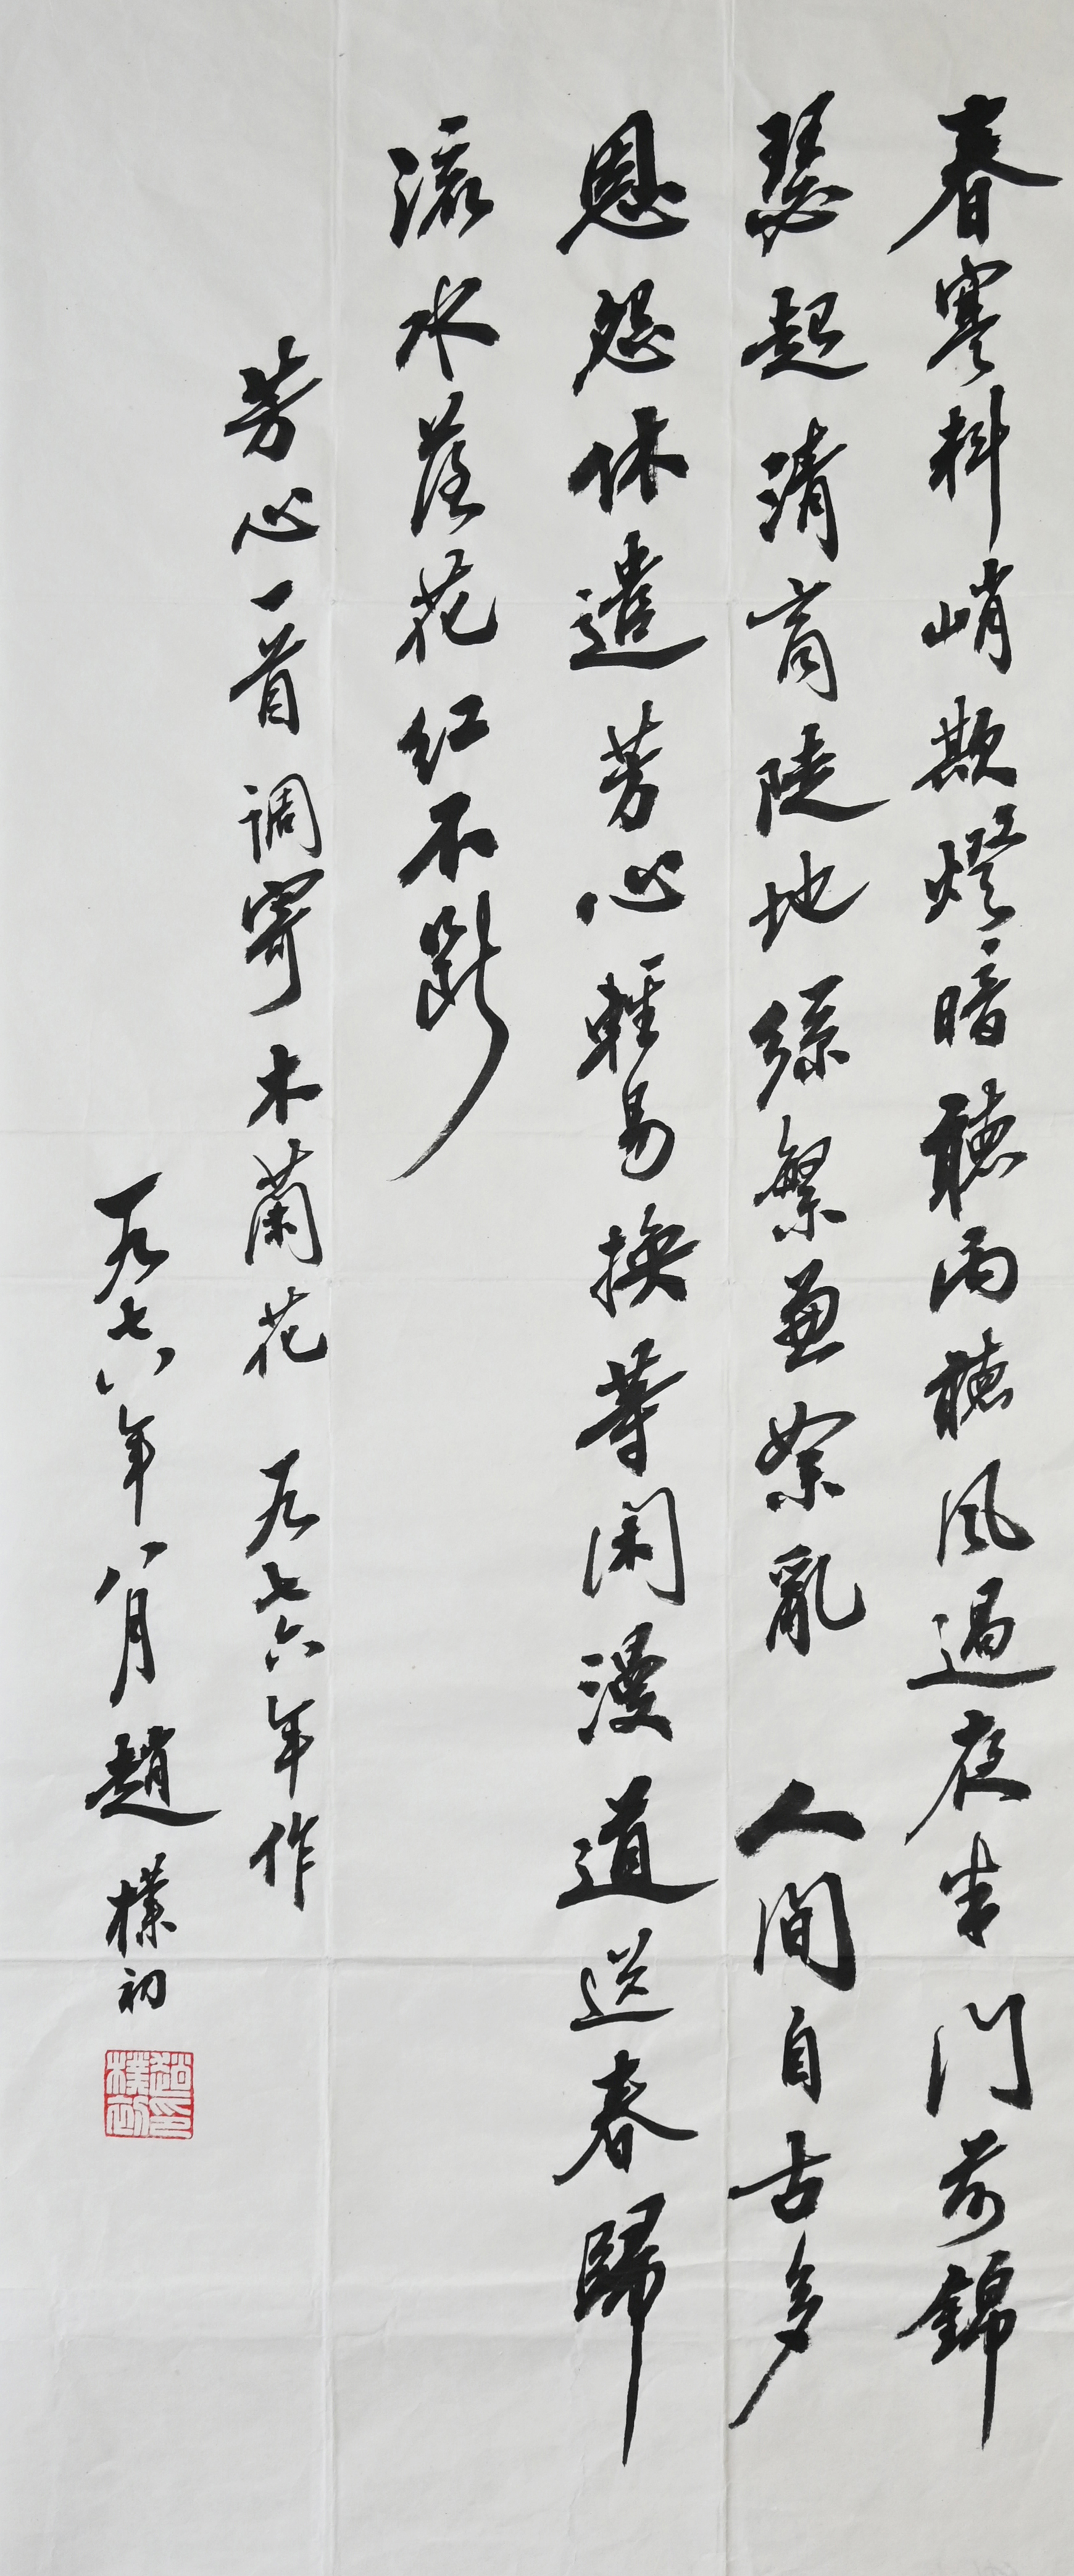 春寒料峭欺燈暗聽雨聽風過夜半門前錦
瑟起清商陡地絲繁兼絮亂　人間自古多
恩怨休遣芳心輕易換等閑漫道送春歸
流水落花紅不斷
芳心一首 调寄木蘭花 一九七六年作
一九七八年八月趙樸初
趙樸初印